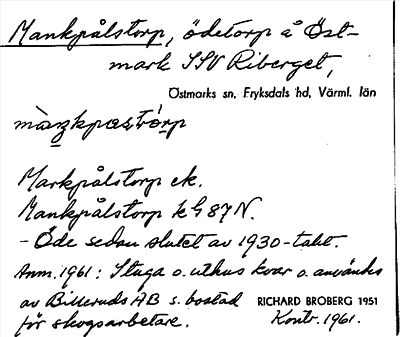 Mankpålstorp, ödetorp å Öst-
mark SSV Riberget,
Östmarks sn, Fryksdals hd, Värml. län
Markpålstorp ek.
Mankpålstorp k G 87 N.
- Öde sedan slutet av 1930-talet.
Anm. 1961: Stuga o. uthus kvar o. används
av Billeruds AB s. bostad
för skogsarbetare.
RICHARD BROBERG 1951
Kontr. 1961.